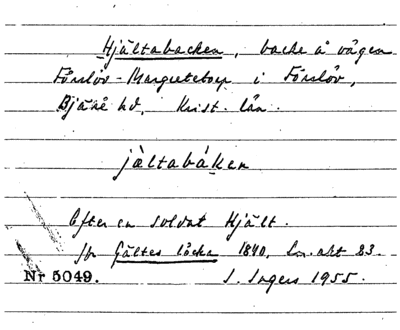 Hjältabacken, backe å vägen
Förslöv - Margretetorp i Förslöv,
Bjäre hd, Krist. län.
jàltabáken
Efter en soldat Hjält.
jfr Gältes löcka 1840, Lm. akt 23.
Nr 5049. I. Ingers 1955.